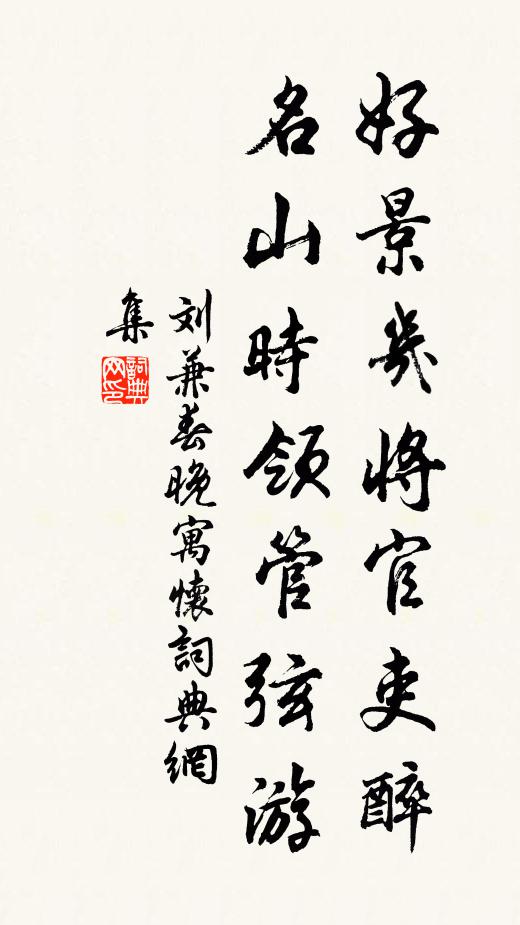 好景幾將官吏醉
名山時領管弦游
刘兼春晚寓懷詞典網
集
詞典网印